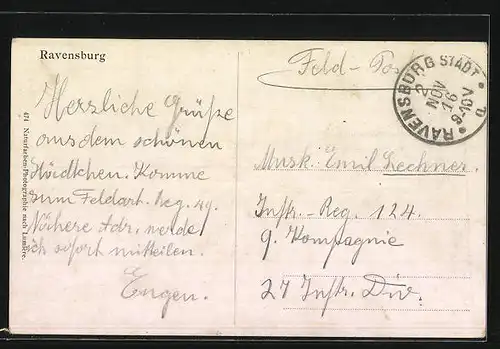 Ravensburg
Herzliche Grüße
aus dem schönen
Städtchen. Komme
zum Feldart. Reg. 49.
Nähere Adr. werde
ich sofort mitteilen.
Eugen.
471 Naturfarben-Photographie nach Lumière.
Feld-Post
RAVENSBURG STADT
2
NOV
16
9-10V
Musk. Emil Lechner.
Inftr. Reg. 124.
9. Kompagnie
27 Inftr. Div.